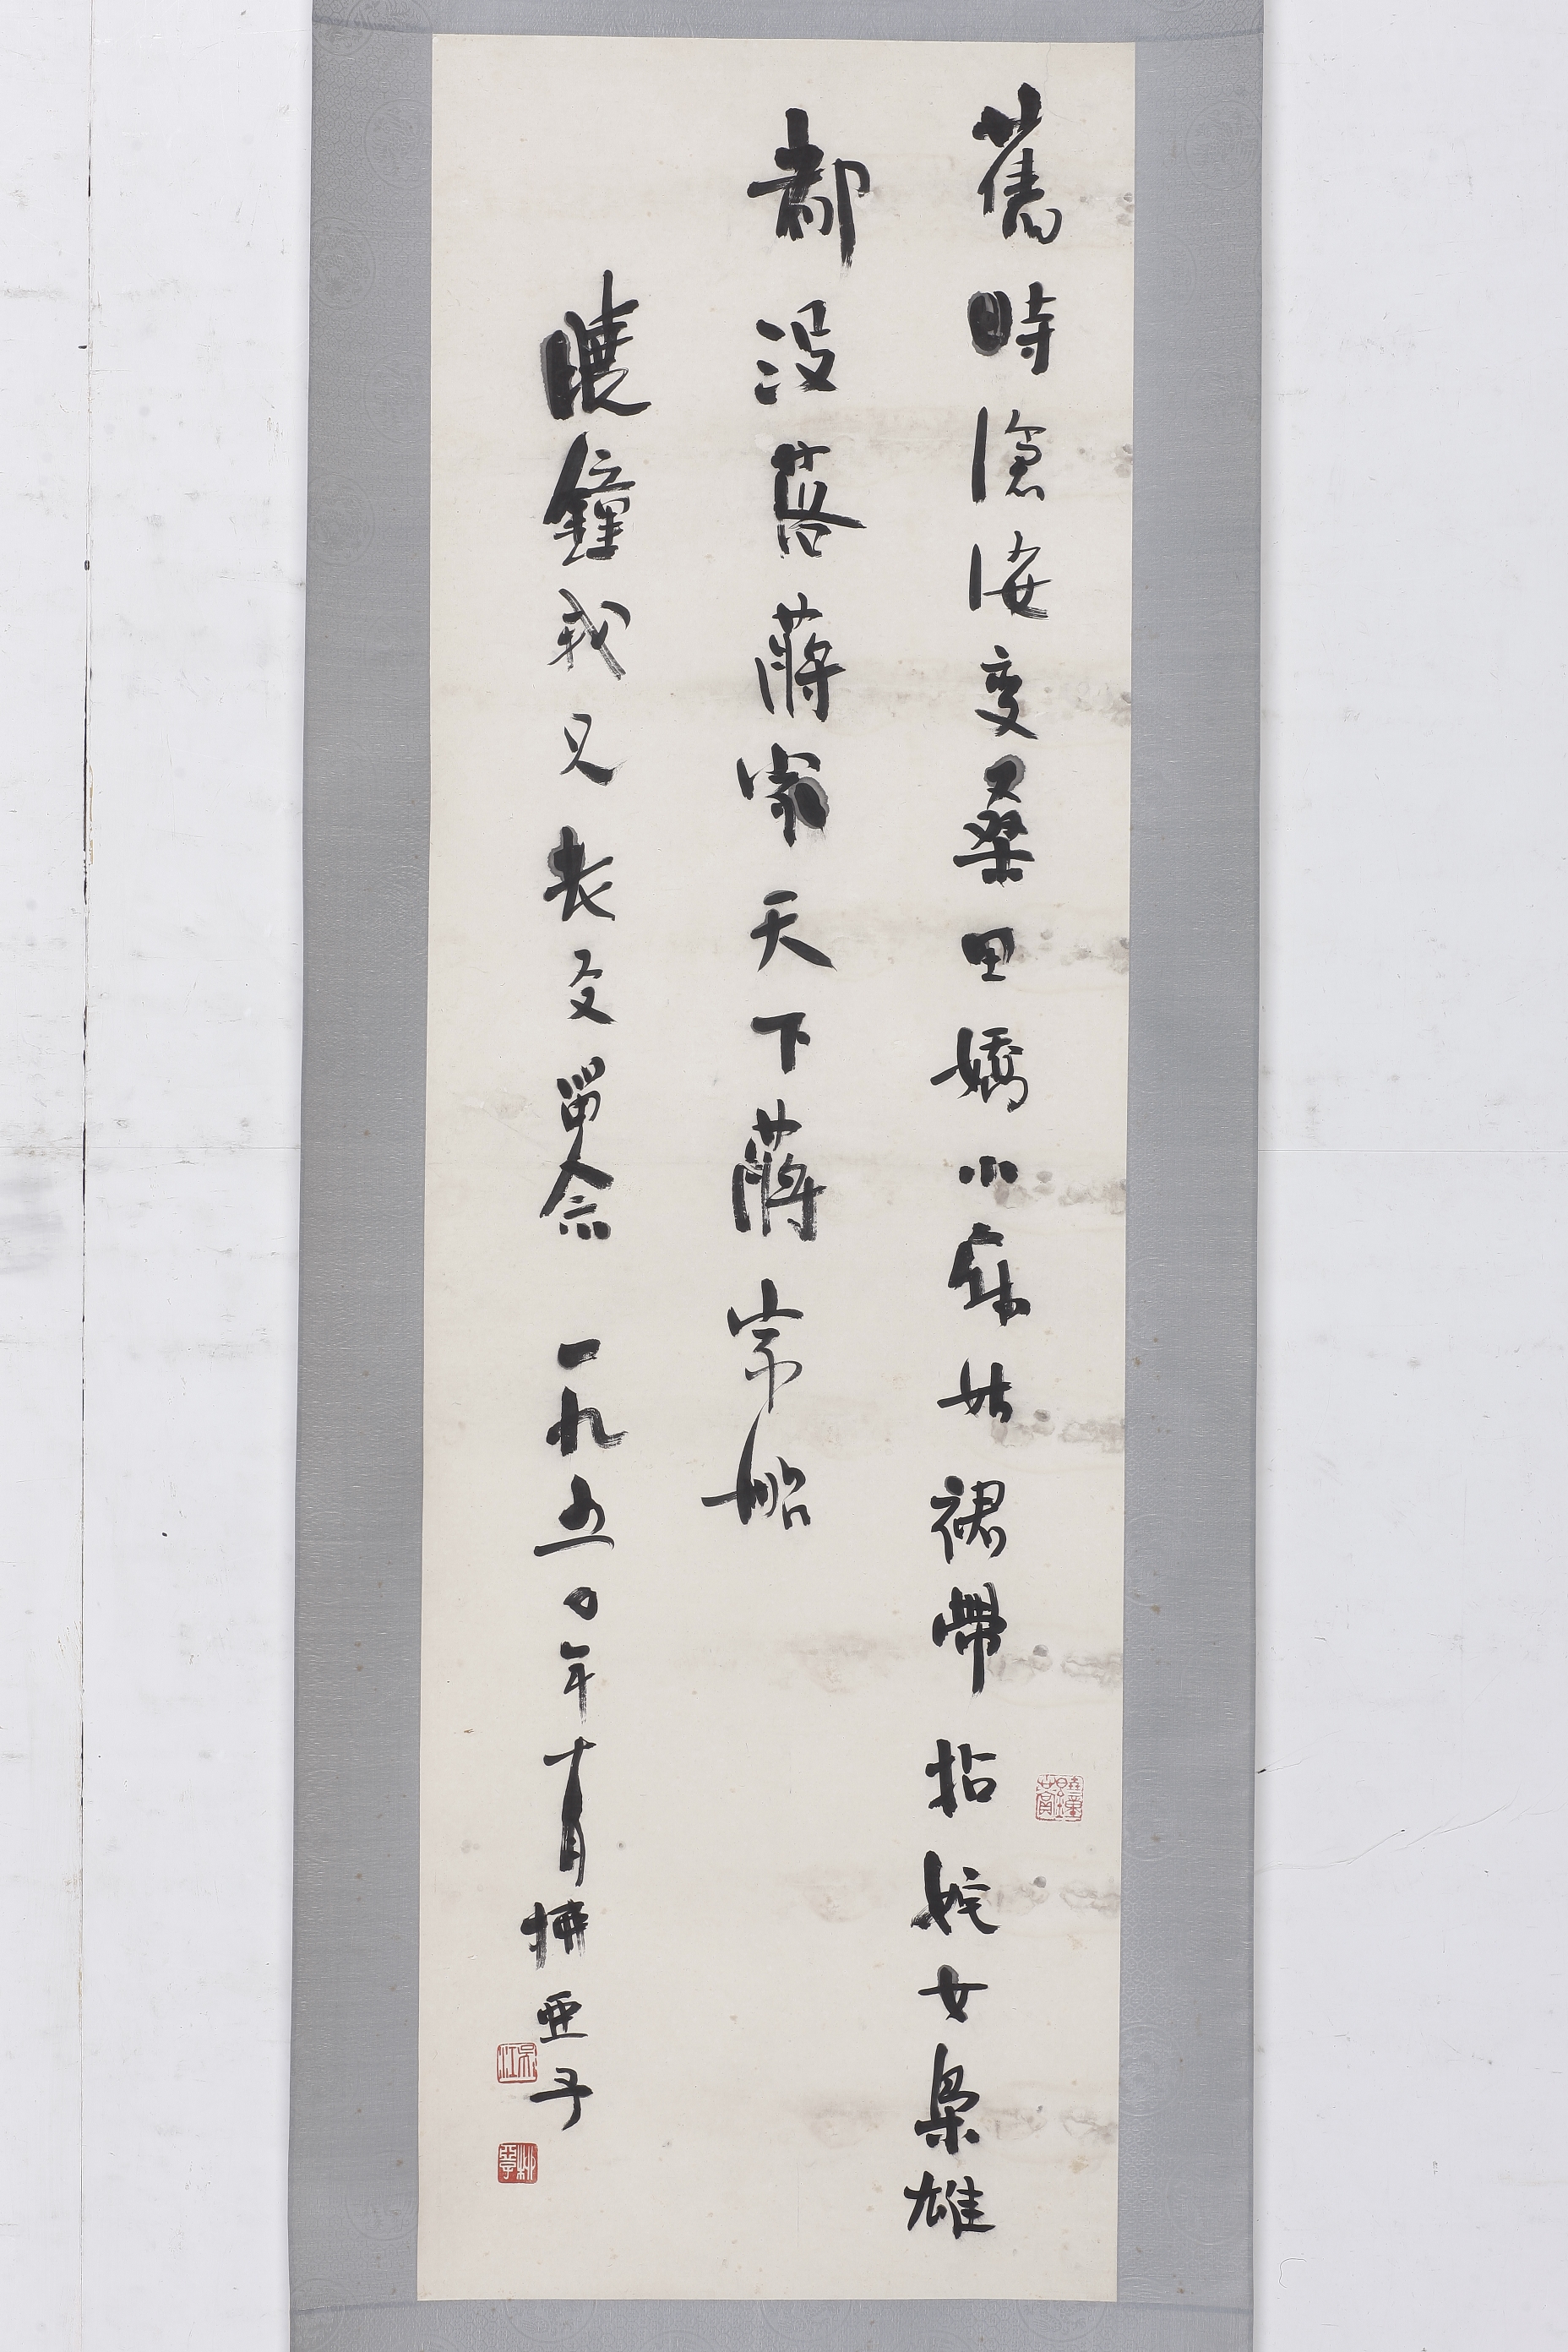 舊時滄海變桑田嬌小麻姑裙帶拈姹女梟雄
都没落蔣家天下蔣
曉鐘我兄老友留念 一九五〇年十月柳亞子
吳江